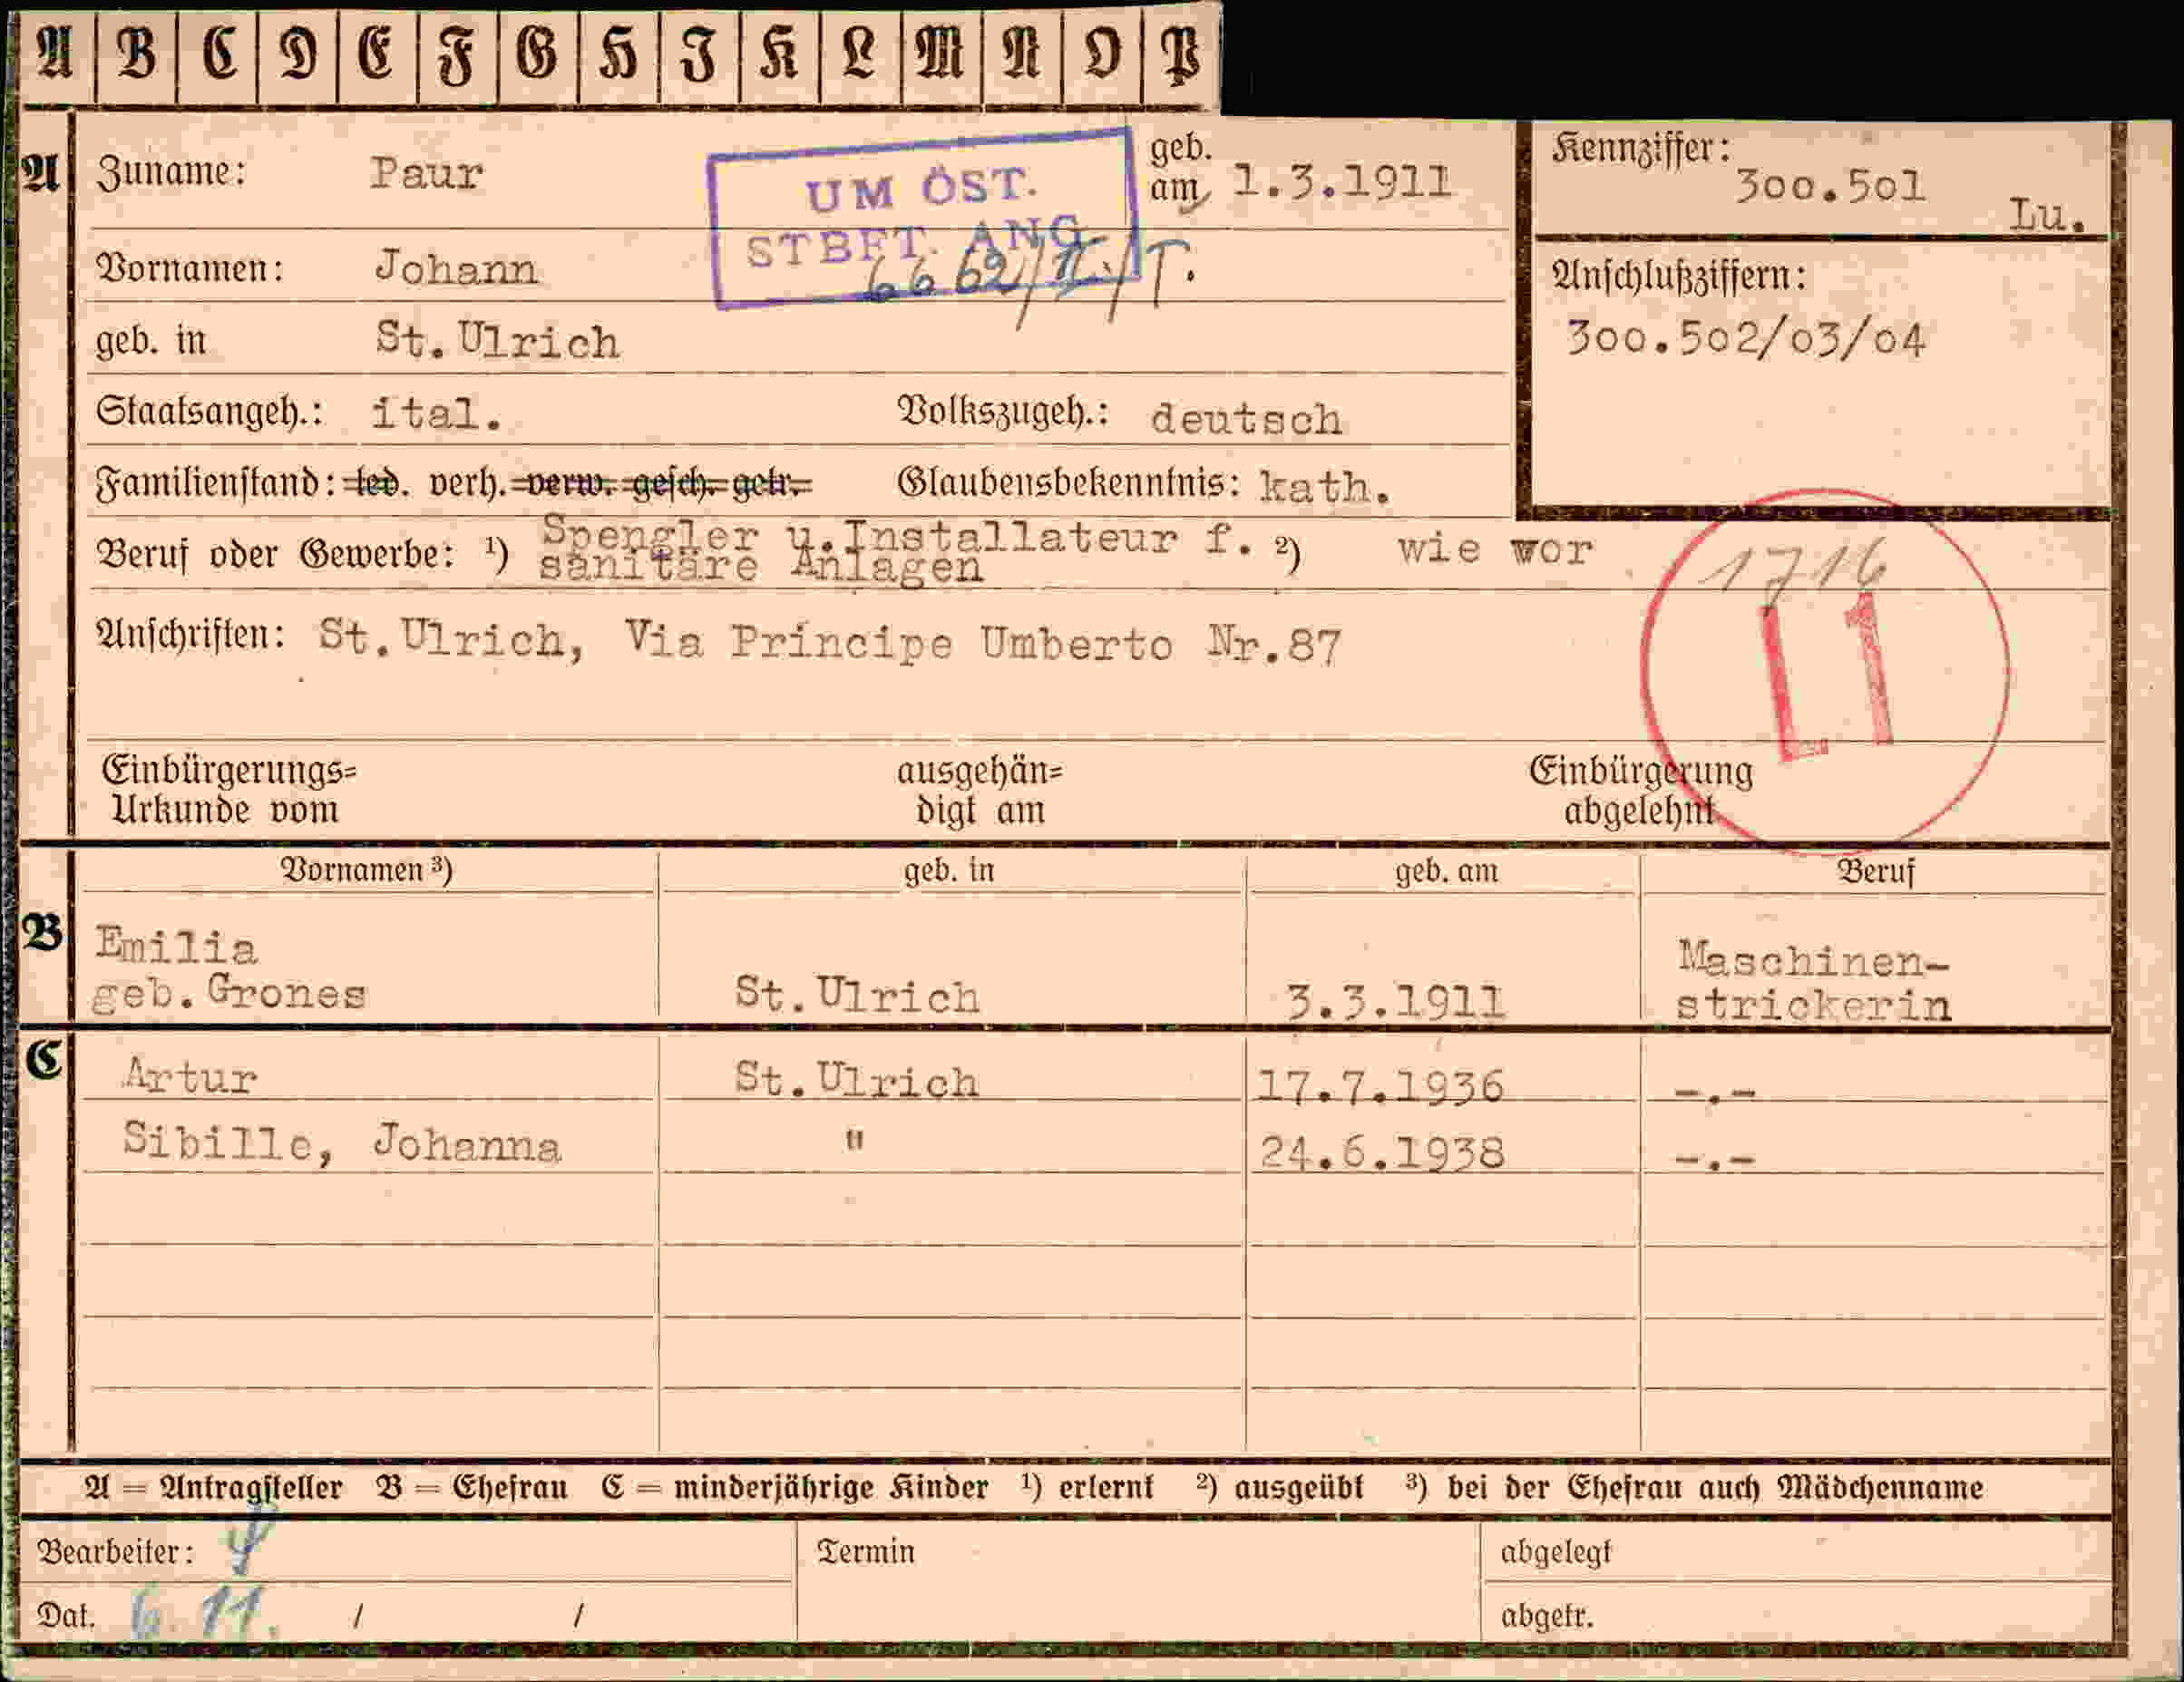 A B C D E F G H I K L M N O P
A Zuname: Paur geb. am 1.3.1911
UM ÖST.
STBFT. ANG
6662/II/T.
Kennziffer: 300.501 Lu.
Vornamen: Johann
Anschlußziffern:
300.502/03/04
geb. in St.Ulrich
Staatsangeh.: ital. Volkszugeh.: deutsch
Familienstand: led. verh. verw. gesch. getr. Glaubensbekenntnis: kath.
Beruf oder Gewerbe: ¹) Spengler u.Installateur f. ²) wie wor
sanitäre Anlagen
1716
L1
Anschriften: St.Ulrich, Via Principe Umberto Nr.87
Einbürgerungs= ausgehän= Einbürgerung
Urkunde vom digt am abgelehnt
Vornamen ³) geb. in geb. am Beruf
B Emilia Maschinen-
geb.Grones St.Ulrich 3.3.1911 strickerin
C Artur St.Ulrich 17.7.1936 -.-
Sibille, Johanna " 24.6.1938 -.-
A = Antragsteller B = Ehefrau C = minderjährige Kinder ¹) erlernt ²) ausgeübt ³) bei der Ehefrau auch Mädchenname
Bearbeiter: Termin abgelegt
Dat. 6. 11. / / abgetr.